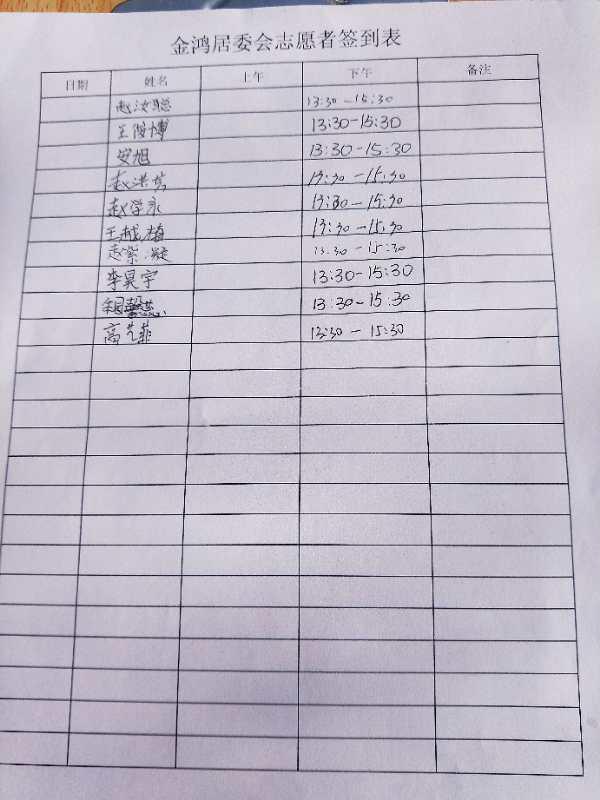 金鸿居委会志愿者签到表
日期 姓名 上午 下午 备注
赵汝聪 13:30-15:30
王俊博 13:30-15:30
安旭 13:30-15:30
赵洪 13:30-15:30
赵学永 13:30-15:30
王越 13:30-15:30
赵紫凝 13:30-15:30
李昊宇 13:30-15:30
13:30-15:30
高艺菲 13:30-15:30